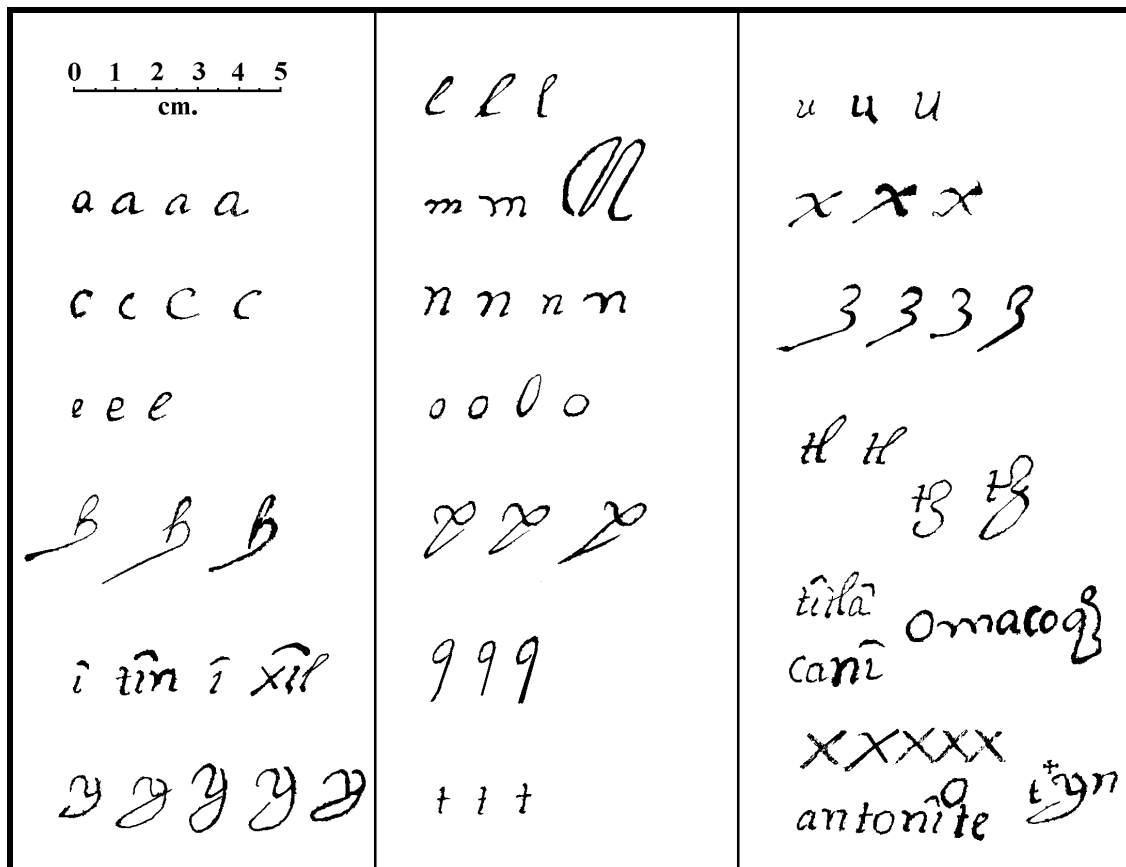 0 1 2 3 4 5
cm.
a a a a
c c c c
e e e
h h h
î tîn î xîl
y y y y y
l l l
m m M
n n n n
o o o o
p p p
q q q
t t t
u u u
x x x
z z z z
tl tl tz tz
tîtlâ
canî
x x x x x
antonîote